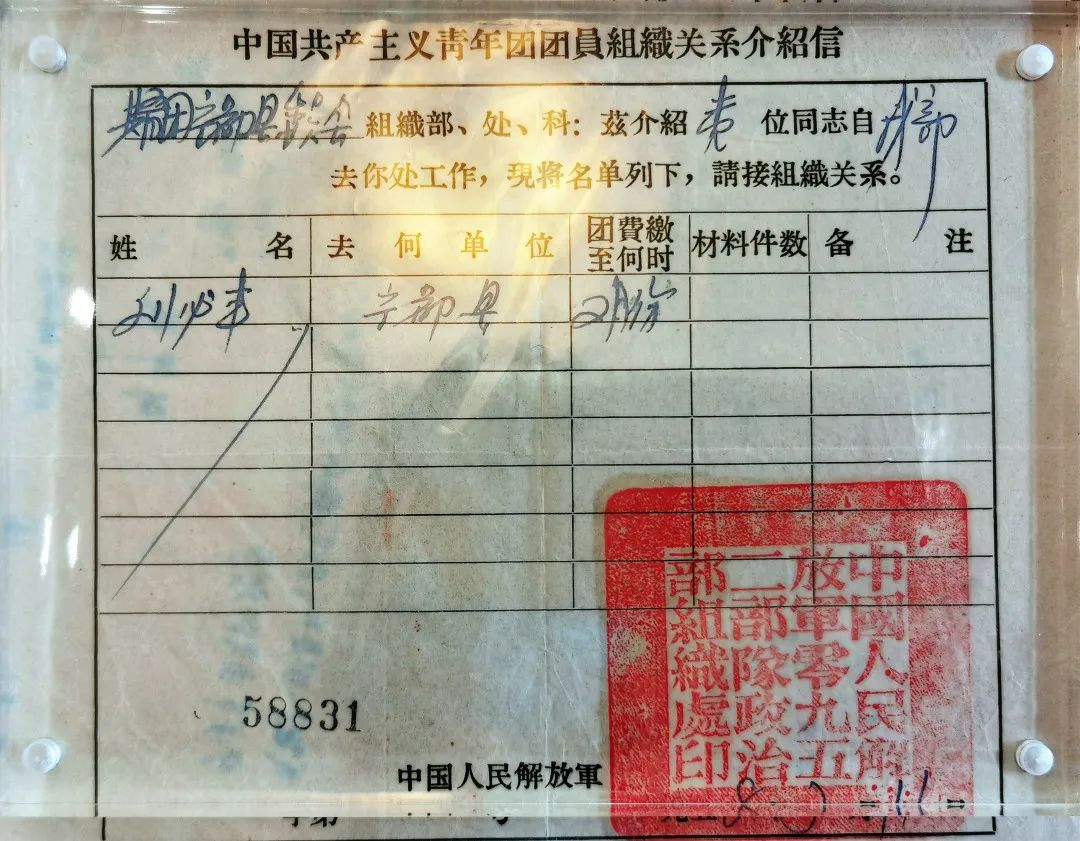 中国共产主义青年团团員組織关系介紹信
共青团宁都县委会 組織部、处、科：茲介紹壱位同志自
去你处工作，現将名单列下，請接組織关系。
姓名 去何单位 团費繳至何时 材料件数 备注
刘必丰 宁都县 2月份
58831
中国人民解放軍
中國人民解放軍零九五二部隊政治部組織處印